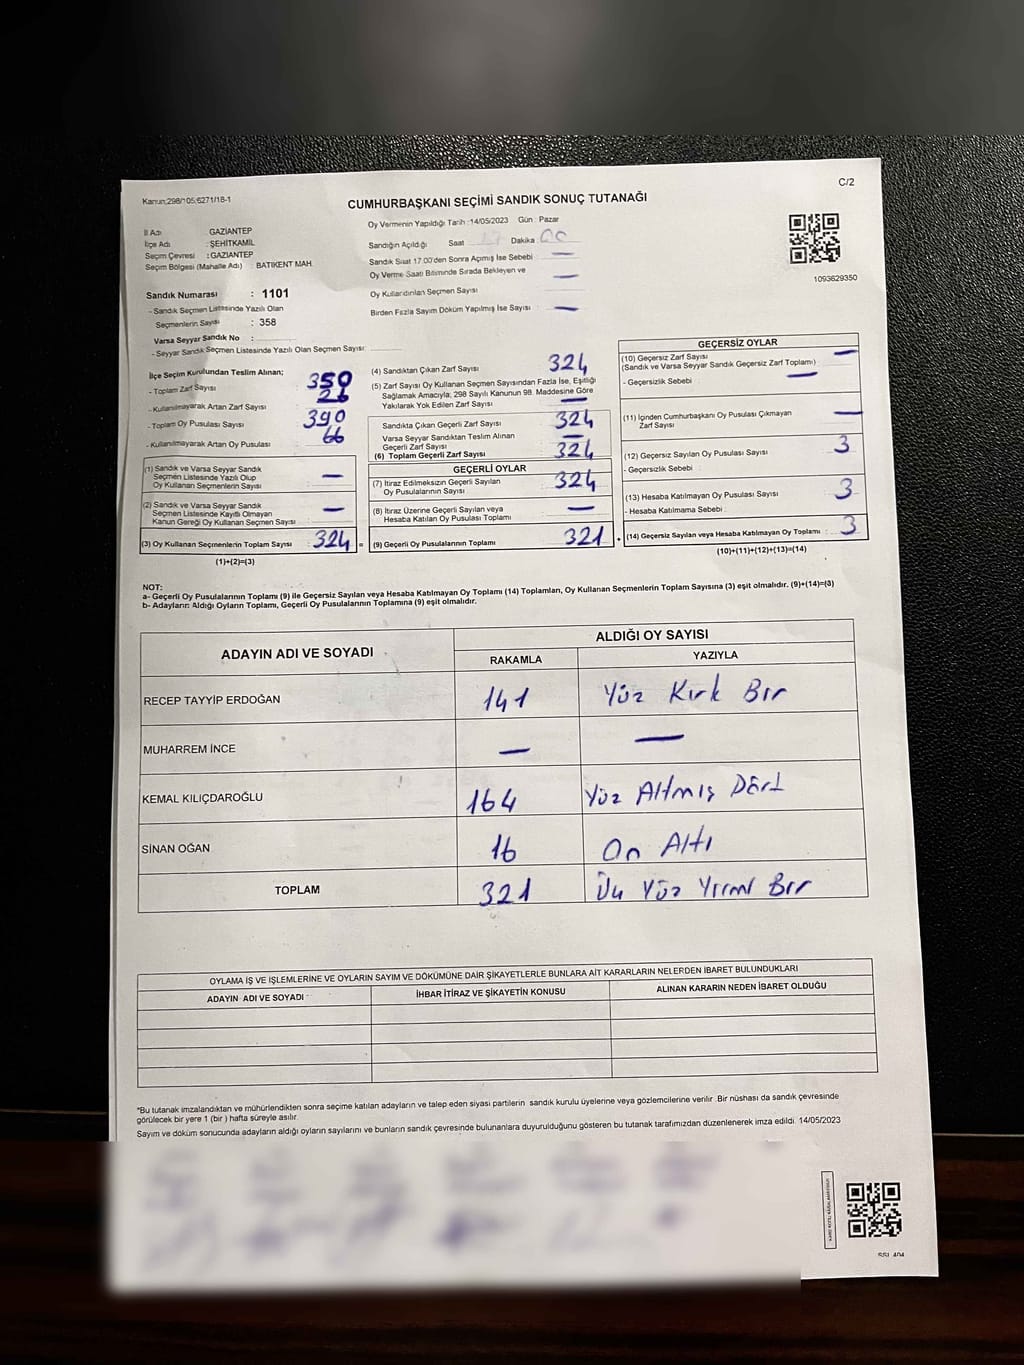 Kanun;298/105;6271/18-1
C/2
CUMHURBAŞKANI SEÇİMİ SANDIK SONUÇ TUTANAĞI
İl Adı : GAZİANTEP
İlçe Adı : ŞEHİTKAMİL
Seçim Çevresi : GAZİANTEP
Seçim Bölgesi (Mahalle Adı) : BATIKENT MAH.
Sandık Numarası : 1101
- Sandık Seçmen Listesinde Yazılı Olan
Seçmenlerin Sayısı : 358
Varsa Seyyar Sandık No :
- Seyyar Sandık Seçmen Listesinde Yazılı Olan Seçmen Sayısı:
Oy Vermenin Yapıldığı Tarih :14/05/2023 Gün : Pazar
Sandığın Açıldığı Saat 17 Dakika 00
Sandık Saat 17.00'den Sonra Açımış İse Sebebi —
Oy Verme Saati Bitiminde Sırada Bekleyen ve
Oy Kullandırılan Seçmen Sayısı —
Birden Fazla Sayım Döküm Yapılmış İse Sayısı —
1093629350
İlçe Seçim Kurulundan Teslim Alınan;
- Toplam Zarf Sayısı 350
- Kullanılmayarak Artan Zarf Sayısı 26
- Toplam Oy Pusulası Sayısı 390
- Kullanılmayarak Artan Oy Pusulası 66
(1) Sandık ve Varsa Seyyar Sandık
Seçmen Listesinde Yazılı Olup
Oy Kullanan Seçmenlerin Sayısı —
(2) Sandık ve Varsa Seyyar Sandık
Seçmen Listesinde Kayıtlı Olmayan
Kanun Gereği Oy Kullanan Seçmen Sayısı —
(3) Oy Kullanan Seçmenlerin Toplam Sayısı 324 =
(1)+(2)=(3)
(4) Sandıktan Çıkan Zarf Sayısı 324
(5) Zarf Sayısı Oy Kullanan Seçmen Sayısından Fazla İse, Eşitliği
Sağlamak Amacıyla; 298 Sayılı Kanunun 98. Maddesine Göre
Yakılarak Yok Edilen Zarf Sayısı —
Sandıkta Çıkan Geçerli Zarf Sayısı 324
Varsa Seyyar Sandıktan Teslim Alınan
Geçerli Zarf Sayısı —
(6) Toplam Geçerli Zarf Sayısı 324
GEÇERLİ OYLAR
(7) İtiraz Edilmeksizin Geçerli Sayılan
Oy Pusulalarının Sayısı 324
(8) İtiraz Üzerine Geçerli Sayılan veya
Hesaba Katılan Oy Pusulası Toplamı —
(9) Geçerli Oy Pusulalarının Toplamı 321 +
GEÇERSİZ OYLAR
(10) Geçersiz Zarf Sayısı —
(Sandık ve Varsa Seyyar Sandık Geçersiz Zarf Toplamı)
- Geçersizlik Sebebi —
(11) İçinden Cumhurbaşkanı Oy Pusulası Çıkmayan
Zarf Sayısı —
(12) Geçersiz Sayılan Oy Pusulası Sayısı 3
- Geçersizlik Sebebi :
(13) Hesaba Katılmayan Oy Pusulası Sayısı 3
- Hesaba Katılmama Sebebi :
(14) Geçersiz Sayılan veya Hesaba Katılmayan Oy Toplamı 3
(10)+(11)+(12)+(13)=(14)
NOT:
a- Geçerli Oy Pusulalarının Toplamı (9) ile Geçersiz Sayılan veya Hesaba Katılmayan Oy Toplamı (14) Toplamları, Oy Kullanan Seçmenlerin Toplam Sayısına (3) eşit olmalıdır. (9)+(14)=(3)
b- Adayların Aldığı Oyların Toplamı, Geçerli Oy Pusulalarının Toplamına (9) eşit olmalıdır.
ADAYIN ADI VE SOYADI
ALDIĞI OY SAYISI
RAKAMLA YAZIYLA
RECEP TAYYİP ERDOĞAN 141 Yüz Kırk Bir
MUHARREM İNCE — —
KEMAL KILIÇDAROĞLU 164 Yüz Altmış Dört
SİNAN OĞAN 16 On Altı
TOPLAM 321 Üç Yüz Yirmi Bir
OYLAMA İŞ VE İŞLEMLERİNE VE OYLARIN SAYIM VE DÖKÜMÜNE DAİR ŞİKAYETLERLE BUNLARA AİT KARARLARIN NELERDEN İBARET BULUNDUKLARI
ADAYIN ADI VE SOYADI İHBAR İTİRAZ VE ŞİKAYETİN KONUSU ALINAN KARARIN NEDEN İBARET OLDUĞU
*Bu tutanak imzalandıktan ve mühürlendikten sonra seçime katılan adayların ve talep eden siyasi partilerin sandık kurulu üyelerine veya gözlemcilerine verilir .Bir nüshası da sandık çevresinde
görülecek bir yere 1 (bir ) hafta süreyle asılır.
Sayım ve döküm sonucunda adayların aldığı oyların sayılarını ve bunların sandık çevresinde bulunanlara duyurulduğunu gösteren bu tutanak tarafımızdan düzenlenerek imza edildi. 14/05/2023